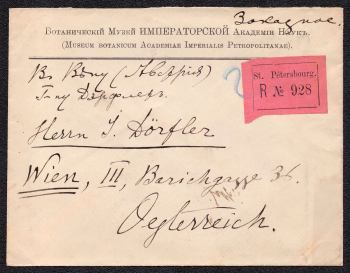 Заказное.
Ботаническій Музей ИМПЕРАТОРСКОЙ Академіи Наукъ.
(Museum botanicum Academiae Imperialis Petropolitanae).
Въ Вѣну (Австрія)
Г-ну Дэрфлеръ.
St. Pétersbourg.
R № 928
Herrn I. Dörfler
Wien, III, Barichgasse 36.
Oesterreich.